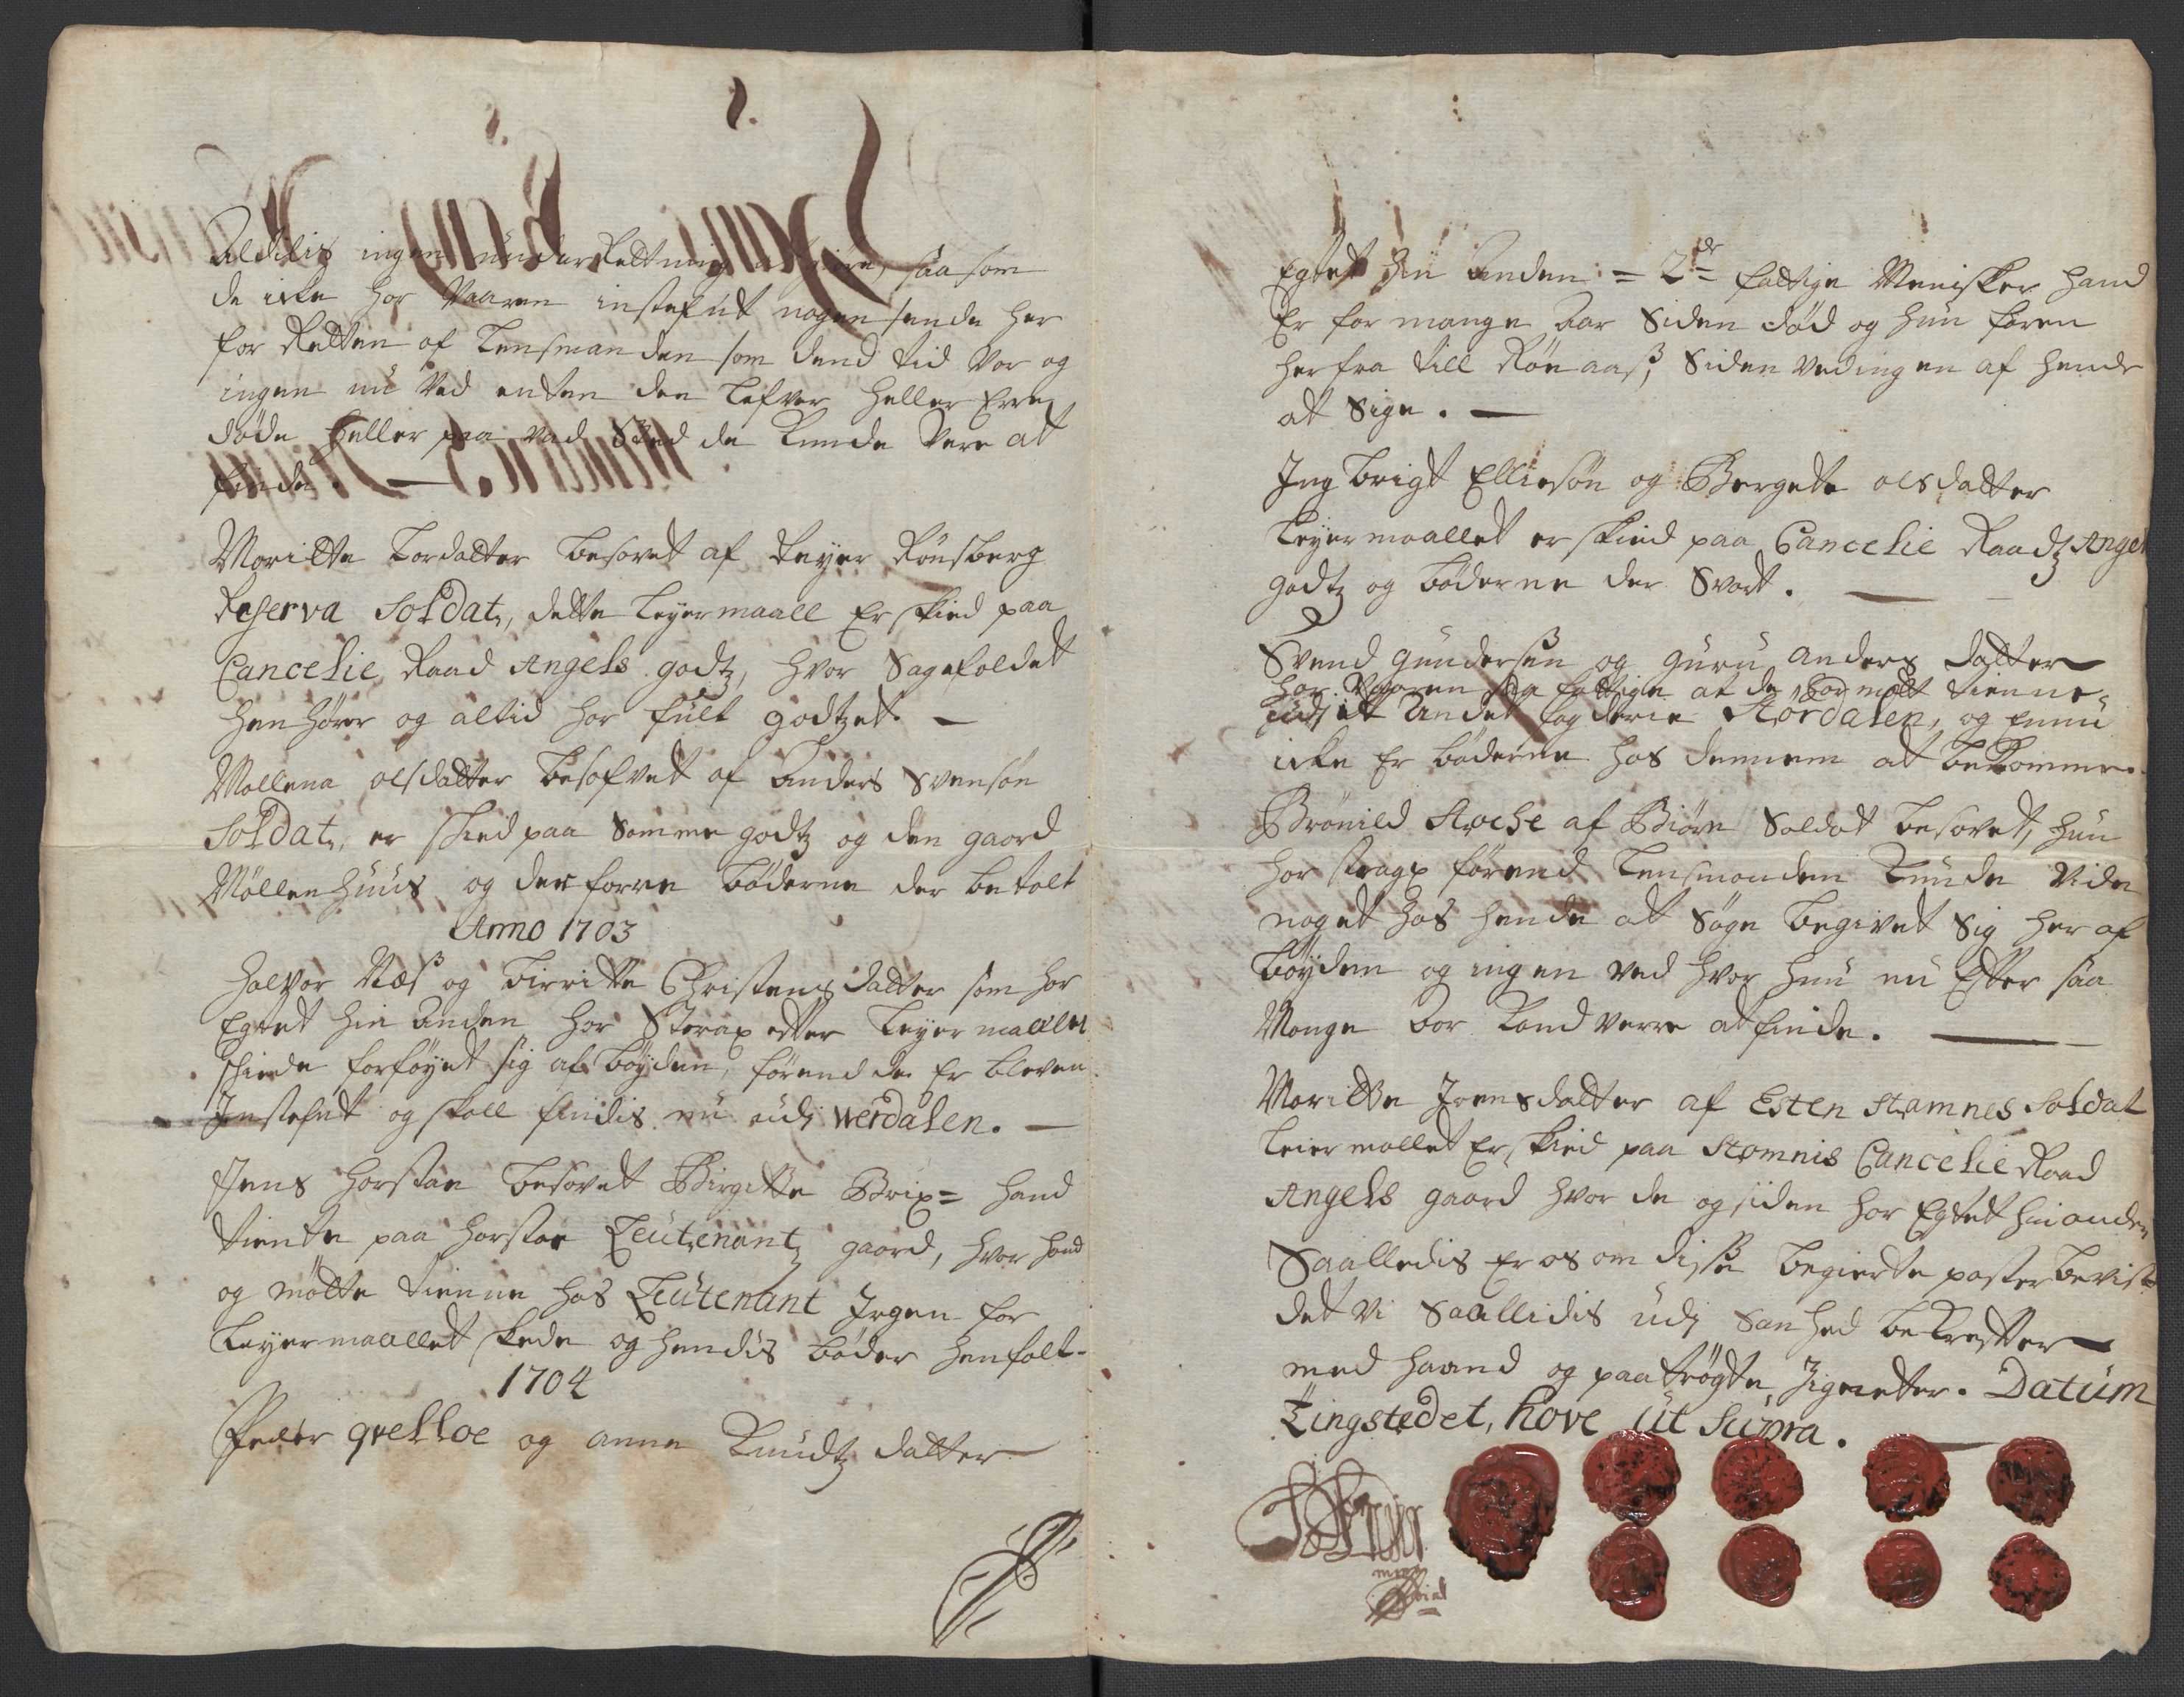 Aldelis ingen underRettning at giøre, saa som
de icke har Vaaren instefnt nogensende her
for Retten af Lensmanden som dend tid Var og
ingen nu Ved enten den Lefver heller Erre
døde heller paa Vad Sted de Kunde Vere at
finde. —
Maritte Tordatter besovet af Reyer Rønsberg
Reserva Soldat, dette Leyermaall Er skied paa
Cancelie Raad Angels godtz, hvor Sagefaldet
henhører og altid har fült godtzet. —
Mallena olsdatter besofvet af Anders Svensøn
Soldat, er skied paa Samme godtz og den gaard
Møllenhuus og derforre bøderne der betalt
Anno 1703
Halvor Næs og Birritte Christensdatter som har
Egtet hin anden har Strax etter Leyermaalet
skiede forføyet sig af bøyden, førend de Er bleven
Instefnt og skall findis nu udj Werdalen. —
Jens Horstae besovet Birgitte Brix= hand
tiente paa Horstae Leutenantz gaard, hvor hand
og motte tienne hos Leutenant Irgen for
Leyermaallet skede og hendis bøder henfalt.
1704
Peder qvelloe og anne Knudtz datter
Egtet hin Anden = 2de fattige Menisker hand
Er for mange Aar Siden død og hun faren
herfra till Rønaas, Siden ved ingen af hende
at Sige. —
Ingbrigt Elliesøn og Bergete olsdatter
Leyermaallet er skied paa Cancelie Raadz Angel
godtz og bøderne der Svart. —
Svend gundersen og guru anders datter
har Vaaren saa fattige at de har mött tienne
udj it Andet fogderie Stördalen, og ennu
icke Er bøderne hos dennem at bekomme.
Brønild Aroche af Biørn Soldat besovet, hun
har strax førend Lensmanden Kunde Vide
noget hos hende at Søge begivet Sig her af
bøyden og ingen ved hvor hun nu Efter saa
Mange Aar Kand verre at finde. —
Maritte Irensdatter af Esten Stamnes Soldat
Leiermallet Er skied paa Stamnis Cancelie Raad
Angels gaard hvor de og siden har Egtet hin anden
Saalledis Er os om disse begierte poster bevist
det vi Saallidis udj Sanhed bekrefter
med haand og paatrögte Zigneter. Datüm
Tingstedet, hove üt Süpra. —